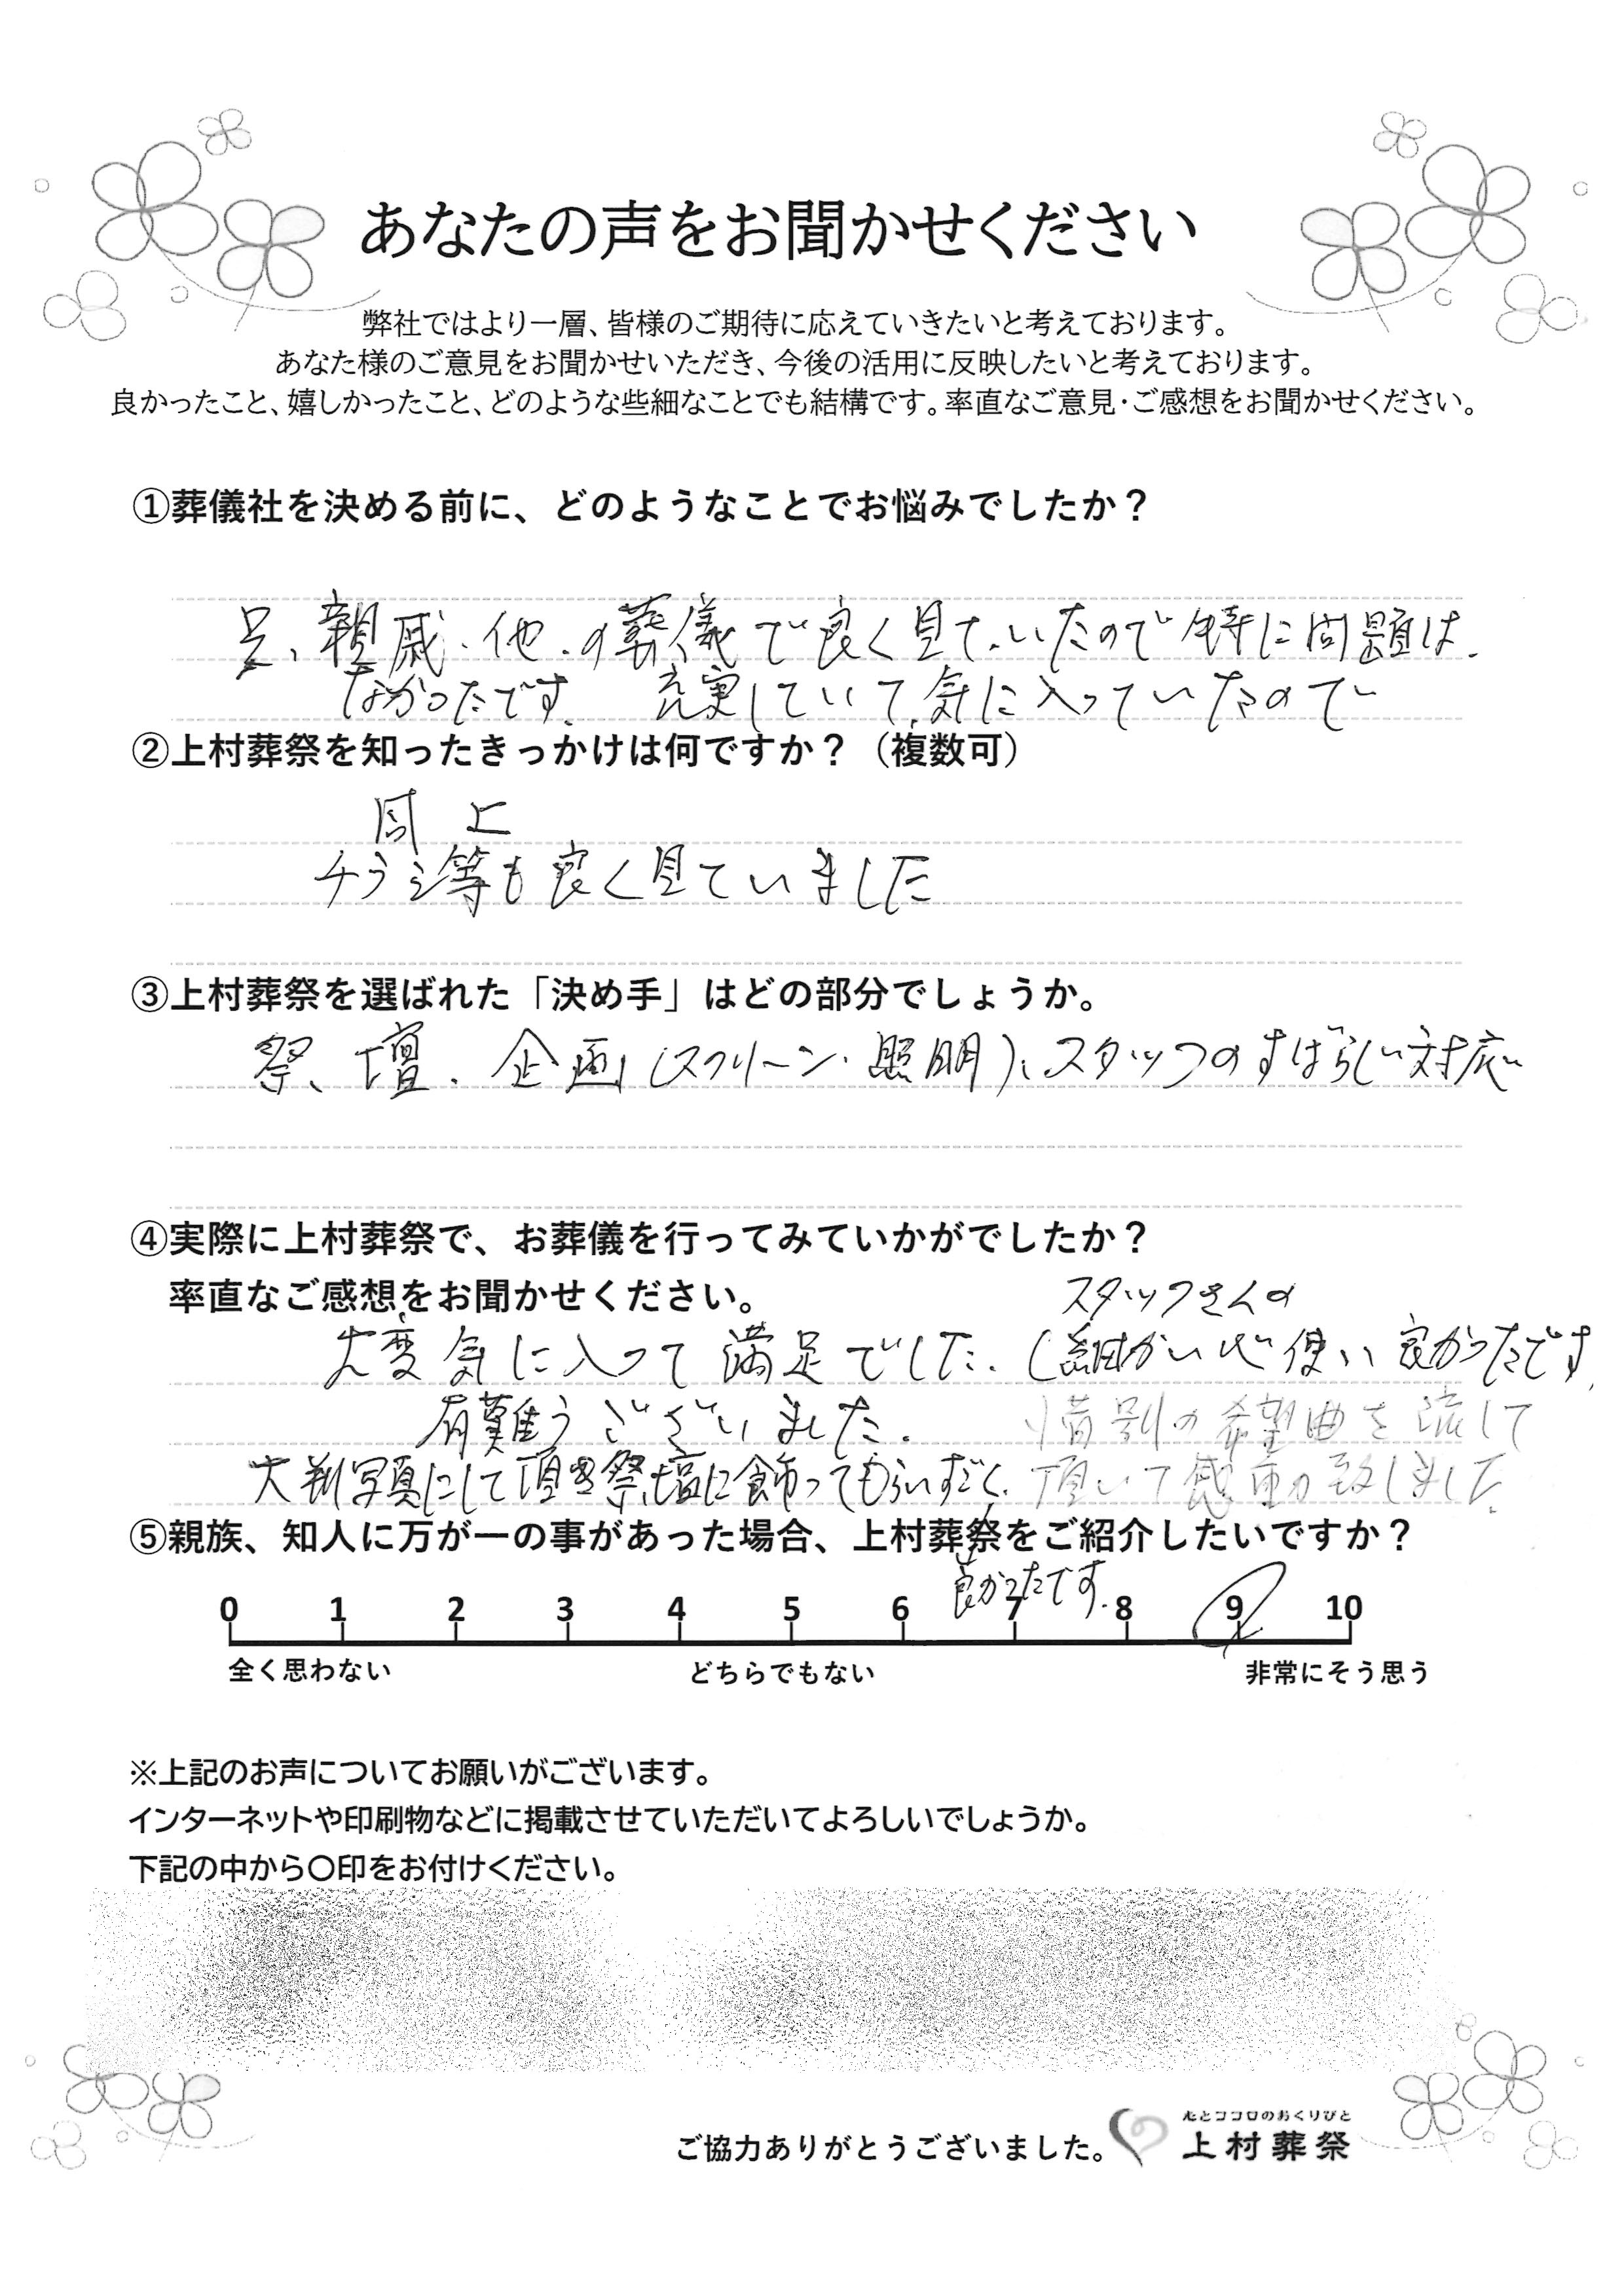 あなたの声をお聞かせください
弊社ではより一層、皆様のご期待に応えていきたいと考えております。
あなた様のご意見をお聞かせいただき、今後の活用に反映したいと考えております。
良かったこと、嬉しかったこと、どのような些細なことでも結構です。率直なご意見・ご感想をお聞かせください。
①葬儀社を決める前に、どのようなことでお悩みでしたか？
兄、親戚・他・の葬儀で良く見ていたので特に問題は
なかったです。 充実していて、気に入っていたので
②上村葬祭を知ったきっかけは何ですか？（複数可）
同上
チラシ等も良く見ていました
③上村葬祭を選ばれた「決め手」はどの部分でしょうか。
祭壇、企画（スクリーン・照明）、スタッフのすばらしい対応
④実際に上村葬祭で、お葬儀を行ってみていかがでしたか？
率直なご感想をお聞かせください。
スタッフさんの
大変気に入って満足でした。（細かい心使い良かったです。
有難うございました。 惜別の希望曲を流して
大判写真にして頂き祭壇に飾ってもらいすごく 頂いて感動致しました。
⑤親族、知人に万が一の事があった場合、上村葬祭をご紹介したいですか？
良かったです。
0 1 2 3 4 5 6 7 8 9 10
全く思わない どちらでもない 非常にそう思う
※上記のお声についてお願いがございます。
インターネットや印刷物などに掲載させていただいてよろしいでしょうか。
下記の中から〇印をお付けください。
心とココロのおくりびと
ご協力ありがとうございました。 上村葬祭